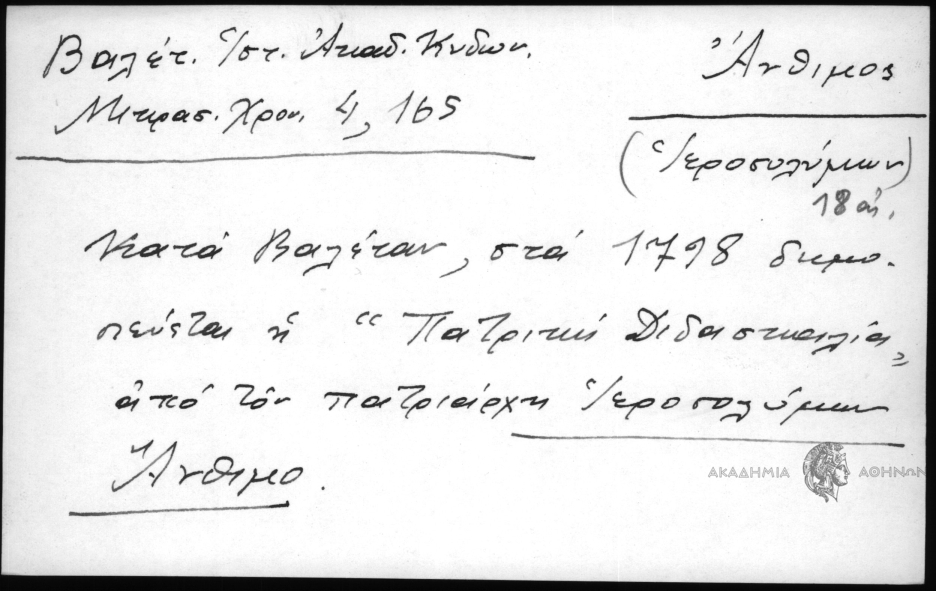 Βαλέτ. Ἱστ. Ἀκαδ. Κυδων.
Μικρασ. Χρον. 4, 165
Ἄνθιμος
(Ἱεροσολύμων)
18 αἰ.
Κατά Βαλέταν, στά 1798 δημο-
σιεύεται ἡ “Πατρική Διδασκαλία„
ἀπό τόν πατριάρχη Ἱεροσολύμων
Ἄνθιμο.
ΑΚΑΔΗΜΙΑ ΑΘΗΝΩΝ